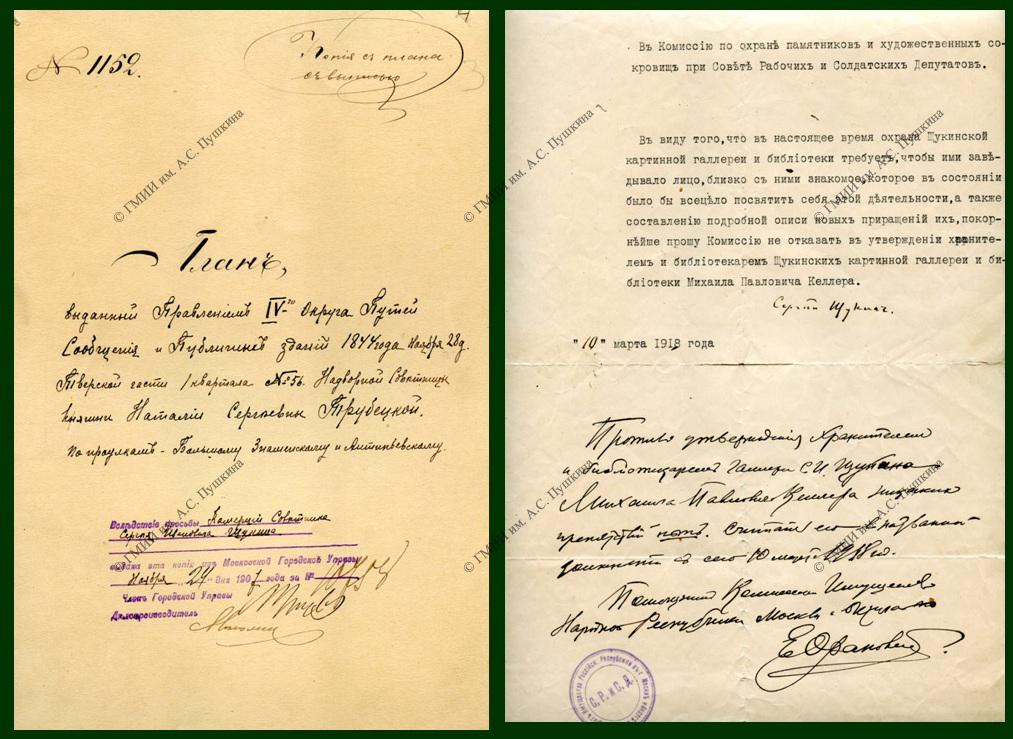 № 1152.
Копія съ плана
съ выписью
Планъ,
выданный Правленіемъ IV го Округа Путей
Сообщенія и Публичныхъ зданій 1844 года Ноября 28 д.
Тверской части 1 квартала № 56. Надворной Совѣтницы
Княгини Наталіи Сергѣевны Трубецкой.
По проулкамъ - Большому Знаменскому и Антипьевскому.
Вслѣдствіе просьбы Коммерціи Совѣтника
Сергѣя Ивановича Щукина
выдана эта копія изъ Московской Городской Управы
Ноября 24 дня 1907 года за №
Членъ Городской Управы
Дѣлопроизводитель
Въ Комиссію по охранѣ памятниковъ и художественныхъ со-
кровищъ при Совѣтѣ Рабочихъ и Солдатскихъ Депутатовъ.
Въ виду того, что въ настоящее время охрана Щукинской
картинной галлереи и библіотеки требуетъ, чтобы ими завѣ-
дывало лицо, близко съ ними знакомое, которое въ состояніи
было бы всецѣло посвятить себя этой дѣятельности, а также
составленію подробной описи новыхъ приращеній ихъ, покор-
нѣйше прошу Комиссію не отказать въ утвержденіи храните-
лемъ и библіотекаремъ Щукинскихъ картинной галлереи и би-
бліотеки Михаила Павловича Келлера.
Сергѣй Щукинъ.
"10" марта 1918 года
Противъ утвержденія Хранителемъ
и библиотекаремъ Галлереи С. И. Щукина
Михаила Павловича Келлера никакихъ
препятствій нѣтъ. Считать его в названной
должности съ сего 10 марта 1918 г.
Помощникъ Комиссара Имуществъ
Народной Республики Москвы и области
С. Р. и С. Д.
© ГМИИ им. А.С. Пушкина
© ГМИИ им. А.С. Пушкина
© ГМИИ им. А.С. Пушкина
© ГМИИ им. А.С. Пушкина
© ГМИИ им. А.С. Пушкина
© ГМИИ им. А.С. Пушкина